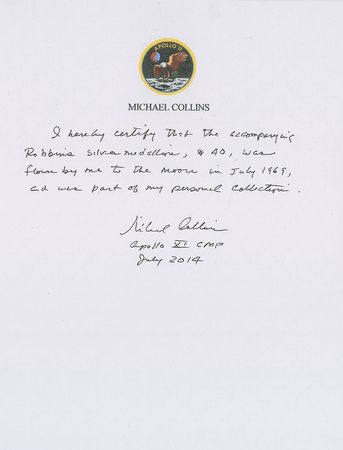 APOLLO 11
MICHAEL COLLINS
I hereby certify that the accompanying
Robbins silver medallion, # 40, was
flown by me to the moon in July 1969,
and was part of my personal collection.
Michael Collins
Apollo XI CMP
July 2014